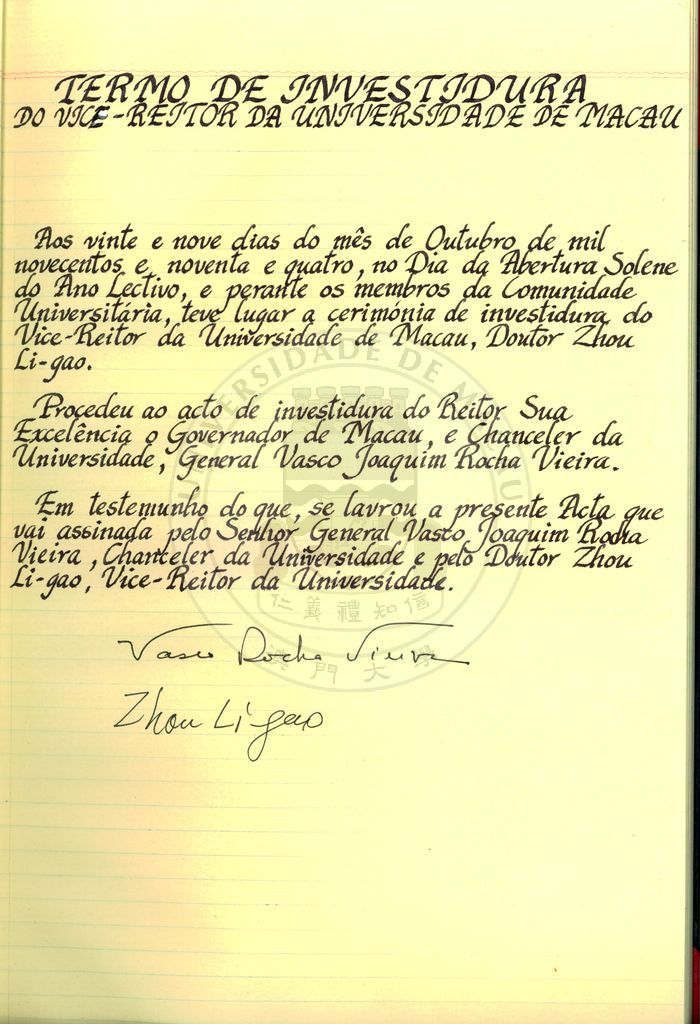 TERMO DE INVESTIDURA
DO VICE-REITOR DA UNIVERSIDADE DE MACAU
Aos vinte e nove dias do mês de Outubro de mil
novecentos e noventa e quatro, no Dia da Abertura Solene
do Ano Lectivo, e perante os membros da Comunidade
Universitária, teve lugar a cerimónia de investidura do
Vice-Reitor da Universidade de Macau, Doutor Zhou
Li-gao.
Procedeu ao acto de investidura do Reitor Sua
Excelência o Governador de Macau, e Chanceler da
Universidade, General Vasco Joaquim Rocha Vieira.
Em testemunho do que, se lavrou a presente Acta que
vai assinada pelo Senhor General Vasco Joaquim Rocha
Vieira, Chanceler da Universidade e pelo Doutor Zhou
Li-gao, Vice-Reitor da Universidade.
UNIVERSIDADE DE
仁義禮知信
澳門大學
Vasco Rocha Vieira
Zhou Li-gao